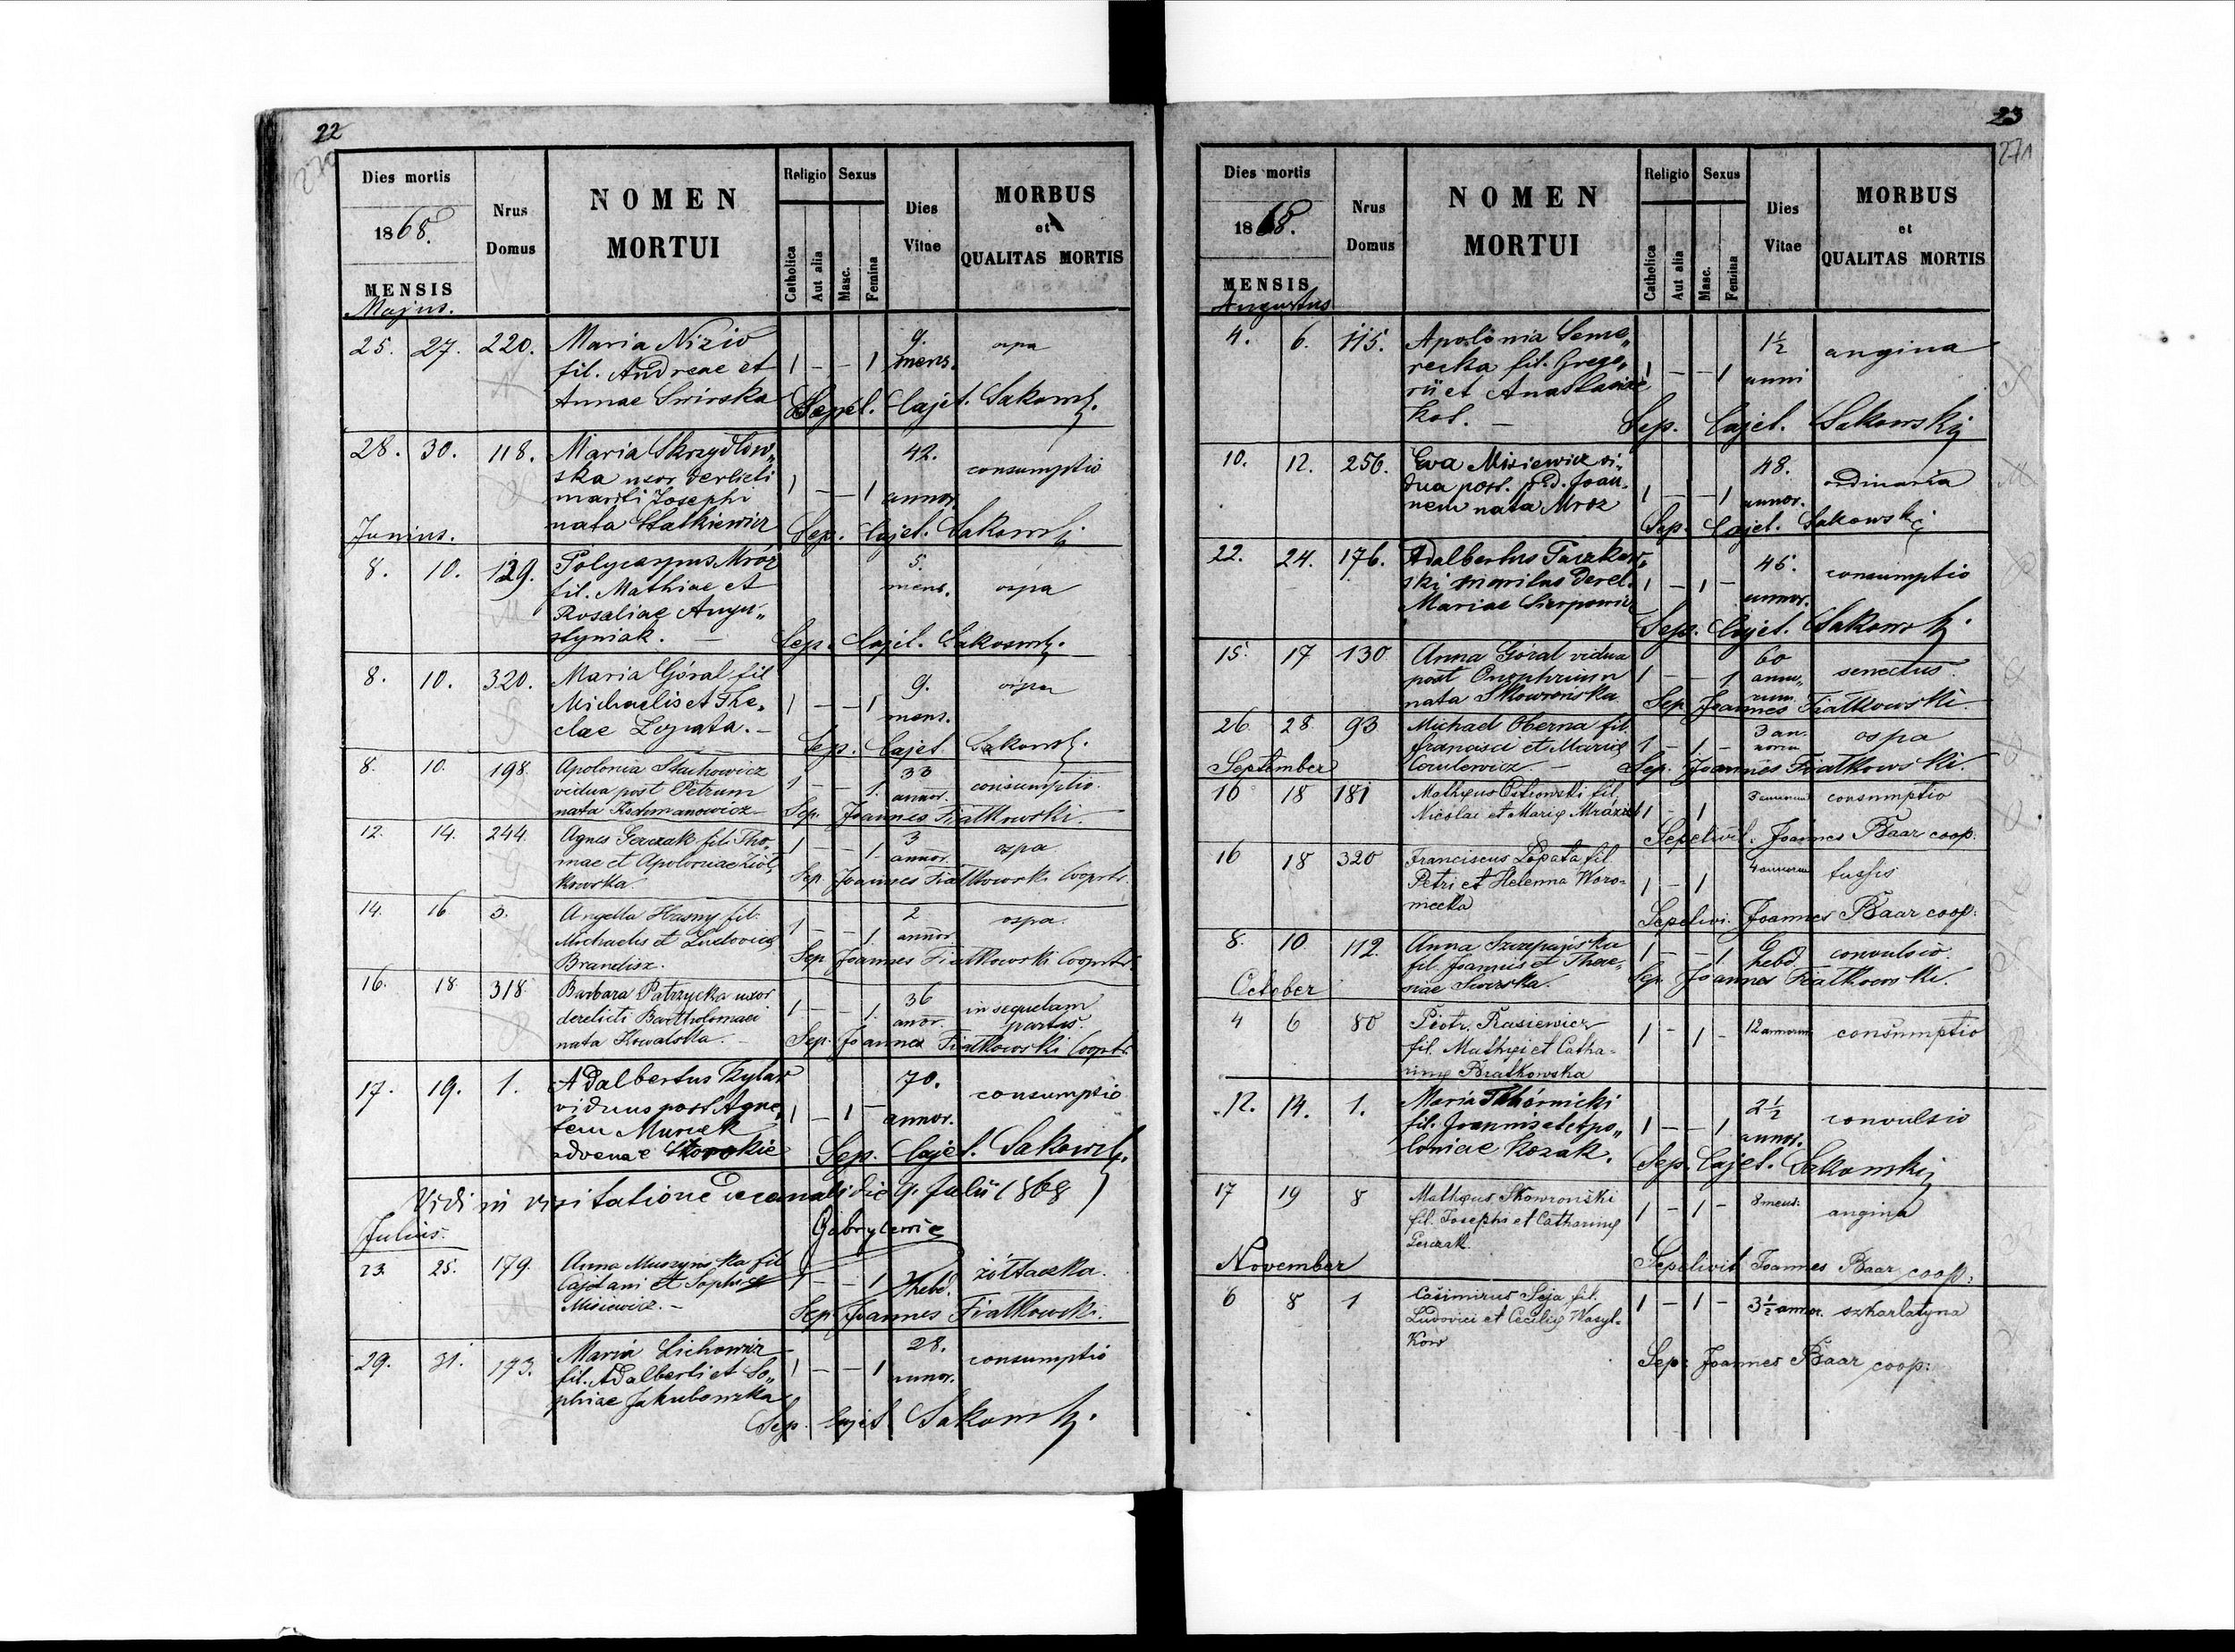 22
270
Dies mortis
1868.
MENSIS
Nrus
Domus
NOMEN
MORTUI
Religio
Sexus
Catholica
Aut alia
Masc.
Femina
Dies
Vitae
MORBUS
et
QUALITAS MORTIS
Majus.
25. 27. 220. Maria Nizio 9. ospa
fil. Andreae et 1 – – 1 mens.
Annae Swirska Sepel. Cajet. Sakowski.
28. 30. 118. Maria Skrzydłow„ 42. consumptio
ska uxor derlicti 1 – – 1 annor.
mariti Josephi
nata Statkiewicz Sep. Cajet. Sakowski
Junius.
8. 10. 129. Polycarpus Mróz 5. ospa
fil. Mathiae et mens.
Rosaliae Augu„
styniak. – Sep. Cajet. Sakowski.
8. 10. 320. Maria Góral fil 9. ospa
Michaelis et The„ 1 – – 1 mens.
clae Łopata. – Sep. Cajet. Sakowski.
8. 10. 198. Apolonia Stachowicz 33 consumptio.
vidua post Petrum 1 – – 1. annor.
nata Rochmanowicz Sep. Joannes Fiałkowski.
12. 14. 244. Agnes Gerczak fil. Tho„ 3 ospa
mae et Apoloniae Ziół„ 1 – – 1. annor.
kowska. Sep. Joannes Fiałkowski Cooprtr.
14. 16 3. Angella Hasny fil. 2 ospa.
Michaelis et Ludovicae 1 – – 1. annor
Brandisz. Sep Joannes Fiałkowski Cooprtr.
16. 18. 318. Barbara Patrzycka uxor 36 in sequelam
derelicti Bartholomaei 1. – – 1. annor. partus.
nata Kowalska. – Sep. Joannes Fiałkowski Cooprtr.
17. 19. 1. Adalbertus Kylar 70. consumptio
viduus post Agne„ 1 – 1 – annor.
tem Muniek
advenae Sep. Cajet. Sakowski.
Vidi in visitatione decanali die 9. Julii 1868
Gabryelewicz
Julius.
23. 25. 179. Anna Muszyńska fil żółtaczka.
Cajetani et Sophiae 1 – – 1 hebd.
Misiewicz. – Sep. Joannes Fiałkowski.
29. 31. 173. Maria Lichowicz 28. consumptio
fil. Adalberti et So„ 1 – – 1 annor.
phiae Jakubowska Sep. Cajet. Sakowski.
23
271
Dies mortis
1868.
MENSIS
Nrus
Domus
NOMEN
MORTUI
Religio
Sexus
Catholica
Aut alia
Masc.
Femina
Dies
Vitae
MORBUS
et
QUALITAS MORTIS
Augustus
4. 6. 115. Apolonia Seme„ 1½ angina
recka fil. Grego„ 1 – – 1 anni
rii et Anastasiae
Kot. – Sep. Cajet. Sakowski
10. 12. 256. Eva Misiewicz vi„ 48. ordinaria
dua post. p.d. Joan„ 1 – – 1 annor.
nem nata Mroz Sep. Cajet. Sakowski
22. 24. 176. Adalbertus Taczkow„ 46. consumptio
ski maritus derel. 1 – 1 – annor.
Mariae Sierpowicz Sep. Cajet. Sakowski.
15. 17 130. Anna Góral vidua 60 senectus.
post Onophrium 1 – – 1 anno„
nata Skowrońska. rum
Sep. Joannes Fiałkowski.
26. 28. 93 Michael Oberna fil. 3 an. ospa
Francisci et Mariae 1 – 1 – norum
– Sep. Joannes Fiałkowski.
September
16 18 181 Matheus Ostrowski fil. 3 annorum consumptio
Nicolai et Mariae 1 – 1
Sepelivit. Joannes Baar coop.
16 18 320 Franciscus Łopata fil 4 annorum tussis
Petri et Helenna Woro- 1 – 1
niecka Sepelivi. Joannes Baar coop:
8. 10. 112. Anna Szczepańska 6 convulsio.
fil. Joannis et There- 1 – – 1 hebd.
siae Swirska. Sep. Joannes Fiałkowski.
October
4 6 80 Piotr. Rasiewicz 12 annorum consumptio
fil. Mathei et Catha- 1 – 1 –
rinae Bratkowska
12. 14. 1. Maria Thórnicki 2½ convulsio
fil. Joannis et Apo„ 1 – – 1 annor.
loniae Kozak. Sep. Cajet. Sakowski
17 19 8 Matheus Skowroński 8 mens. angina
fil. Josephi et Catharinae 1 – 1 –
Gerczak.
Sepelivit Joannes Baar coop:
November
6 8 1 Casimirus Seja fil. 3½ annor. szkarlatyna
Ludovici et Ceciliae Wasyl- 1 – 1 –
kow
Sep: Joannes Baar coop: